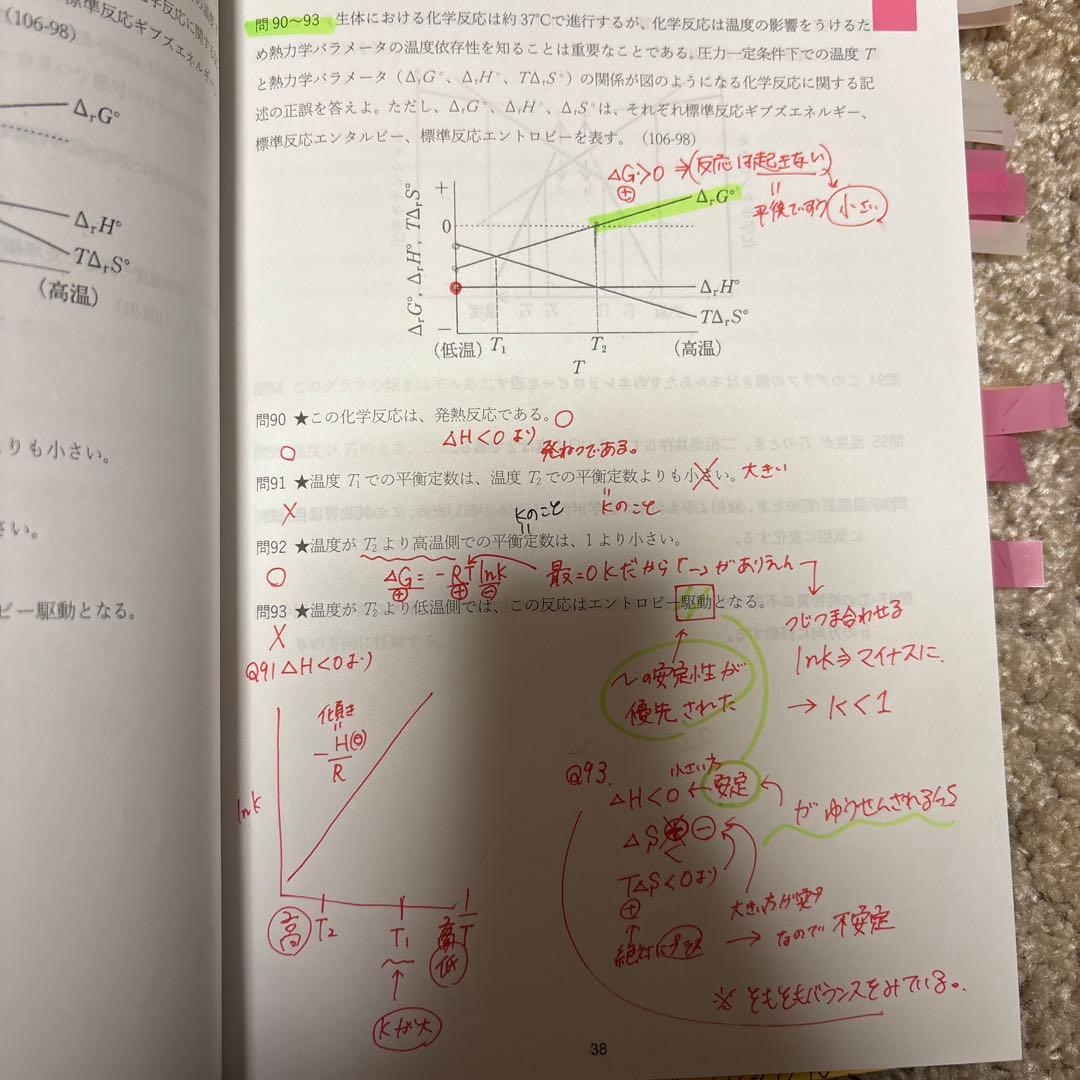 (106-98)
ΔrG°
ΔrH°
TΔrS°
(高温)
りも小さい。
さい。
ピー駆動となる。
問90~93 生体における化学反応は約37℃で進行するが、化学反応は温度の影響をうけるた
め熱力学パラメータの温度依存性を知ることは重要なことである。圧力一定条件下での温度 T
と熱力学パラメータ(ΔrG°、ΔrH°、TΔrS°)の関係が図のようになる化学反応に関する記
述の正誤を答えよ。ただし、ΔrG°、ΔrH°、ΔrS°は、それぞれ標準反応ギブズエネルギー、
標準反応エンタルピー、標準反応エントロピーを表す。(106-98)
ΔG>0 ⇒(反応は起きない)
⊕
平衡ていすう 小さい
ΔrG°, ΔrH°, TΔrS°
+
0
−
ΔrG°
ΔrH°
TΔrS°
(低温) T1 T2 (高温)
T
問90 ★この化学反応は、発熱反応である。○
○ ΔH<0 より 発ねつである。
問91 ★温度 T1 での平衡定数は、温度 T2 での平衡定数よりも小さい。大きい
× Kのこと Kのこと
問92 ★温度が T2 より高温側での平衡定数は、1 より小さい。
○ ΔG = −RT lnK 最=0KだからT「−」がありえん
⊕ ⊕ ⊖
問93 ★温度が T2 より低温側では、この反応はエントロピー駆動となる。
×
つじつま合わせる
lnk⇒マイナスに
→ K<1
〜の安定性が
優先された
Q91 ΔH<0より
傾き
−H(⊖)
R
lnk
高 T2 T1 1/T
低
Kが大
Q93.
小さい方
ΔH<0 ← 安定
がゆうせんされるから
ΔS ⊕ ⊖
TΔS<0より
⊕
絶対にプラス
大きい方が安定
→ なので 不安定
※ そもそもバランスをみている。
38